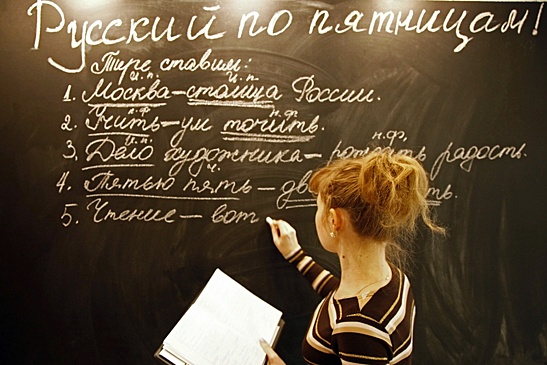 Русский по пятницам!
Тире ставим:
и.п. и.п
1. Москва – столица России.
н.ф н.ф.
2. Учить – ум точить.
и.п н.ф.
3. Дело художника – рождать радость.
ч.
4. Пятью пять –
5. Чтение – вот